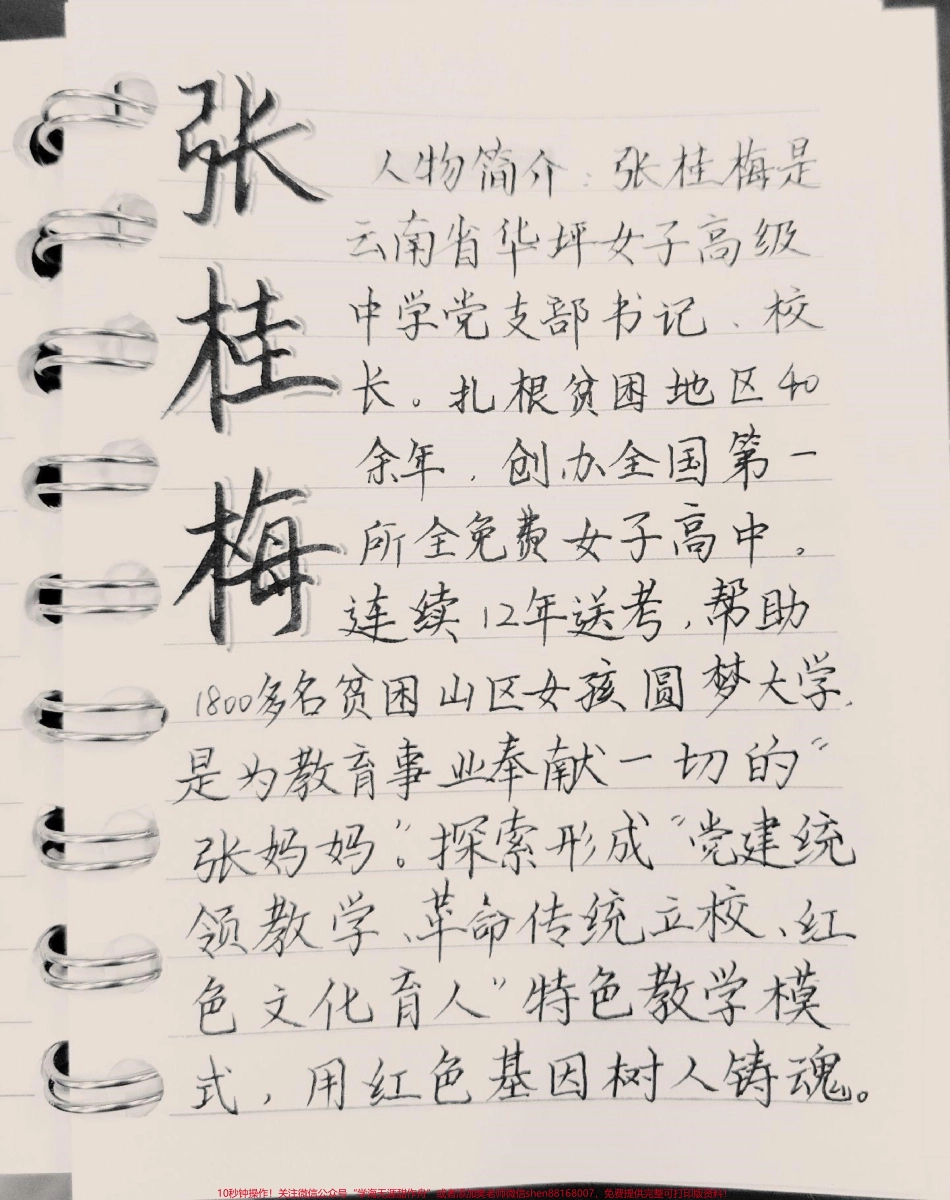 张
桂
梅
人物简介：张桂梅是
云南省华坪女子高级
中学党支部书记、校
长。扎根贫困地区40
余年，创办全国第一
所全免费女子高中。
连续12年送考，帮助
1800多名贫困山区女孩圆梦大学，
是为教育事业奉献一切的“
张妈妈”。探索形成“党建统
领教学、革命传统立校、红
色文化育人”特色教学模
式，用红色基因树人铸魂。
10秒钟操作！关注微信公众号“学海无涯甜作舟”或者添加集老师微信shen88168007，免费提供完整可打印版资料！